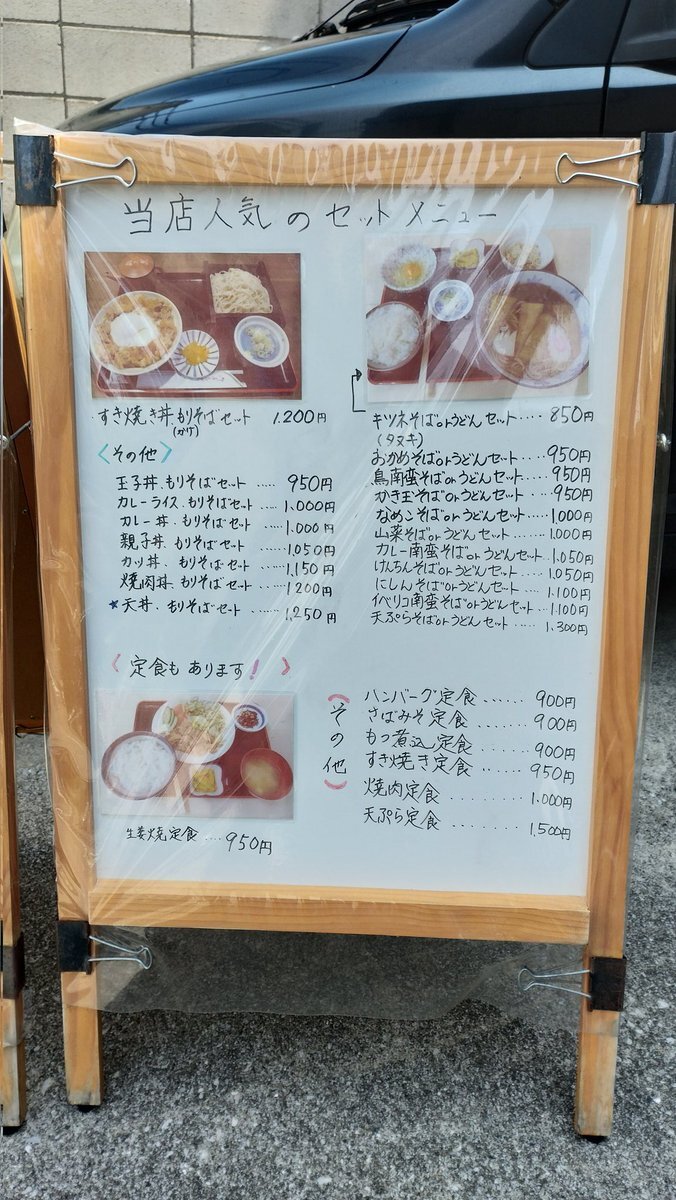 当店人気のセットメニュー
すき焼き丼.もりそばセット 1.200円
(かけ)
〈その他〉
玉子丼.もりそばセット ..... 950円
カレーライス.もりそばセット .... 1.000円
カレー丼.もりそばセット ..... 1.000円
親子丼.もりそばセット ..... 1,050円
カツ丼.もりそばセット ..... 1,150円
焼肉丼.もりそばセット ..... 1200円
★天丼.もりそばセット ..... 1,250円
キツネそばorうどんセット.... 850円
(タヌキ)
おかめそばorうどんセット.... 950円
鳥南蛮そばorうどんセット.... 950円
かき玉そばorうどんセット.... 950円
なめこそばorうどんセット.... 1,000円
山菜そばorうどんセット.... 1.000円
カレー南蛮そばorうどんセット.. 1,050円
けんちんそばorうどんセット.... 1.050円
にしんそばorうどんセット.... 1.100円
イベリコ南蛮そばorうどんセット.. 1.100円
天ぷらそばorうどんセット.... 1.300円
〈定食もあります!〉
生姜焼定食 .... 950円
(その他)
ハンバーグ定食 ...... 900円
さばみそ定食 ...... 900円
もつ煮込定食 ...... 900円
すき焼き定食 ...... 950円
焼肉定食 ........ 1.000円
天ぷら定食 ........ 1,500円